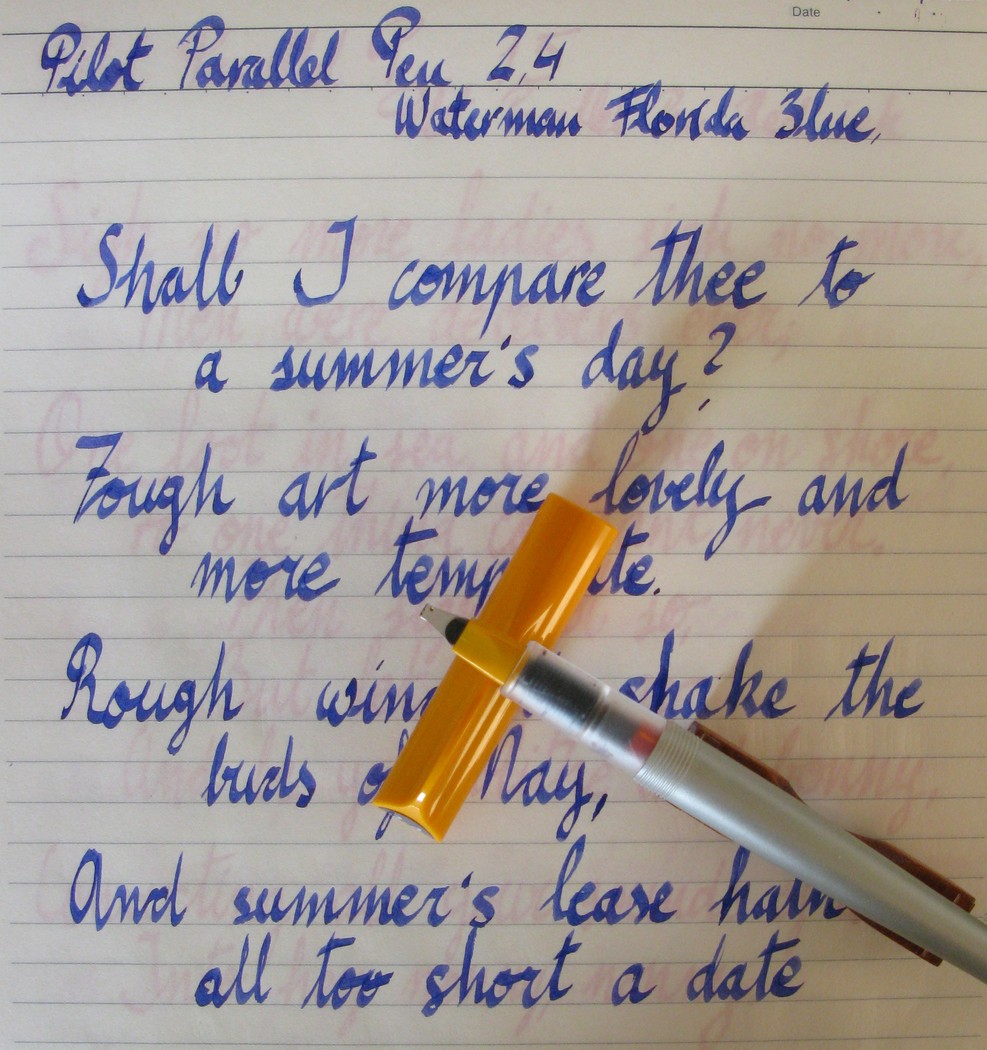 Date
Pilot Parallel Pen 2,4
Waterman Florida Blue,
Shall I compare thee to
a summer's day?
Tough art more lovely and
more temp te.
Rough win shake the
buds of May,
And summer's lease hath
all too short a date